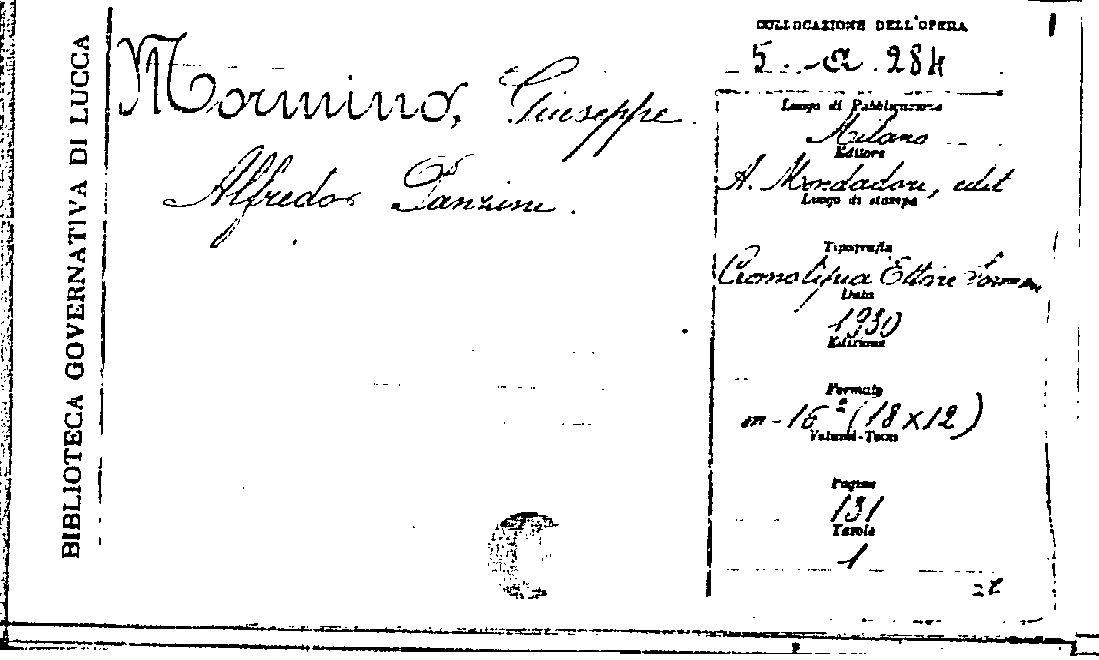 BIBLIOTECA GOVERNATIVA DI LUCCA
Mormino, Giuseppe
Alfredo Panzini.
COLLOCAZIONE DELL'OPERA
5. a. 284
Luogo di Pubblicazione
Milano
Editore
A. Mondadori, edit
Luogo di stampa
Tipografia
Cromotipia Ettore
Data
1930
Edizione
Formato
in-16º (18x12)
Volumi-Tomi
Pagine
131
Tavole
1